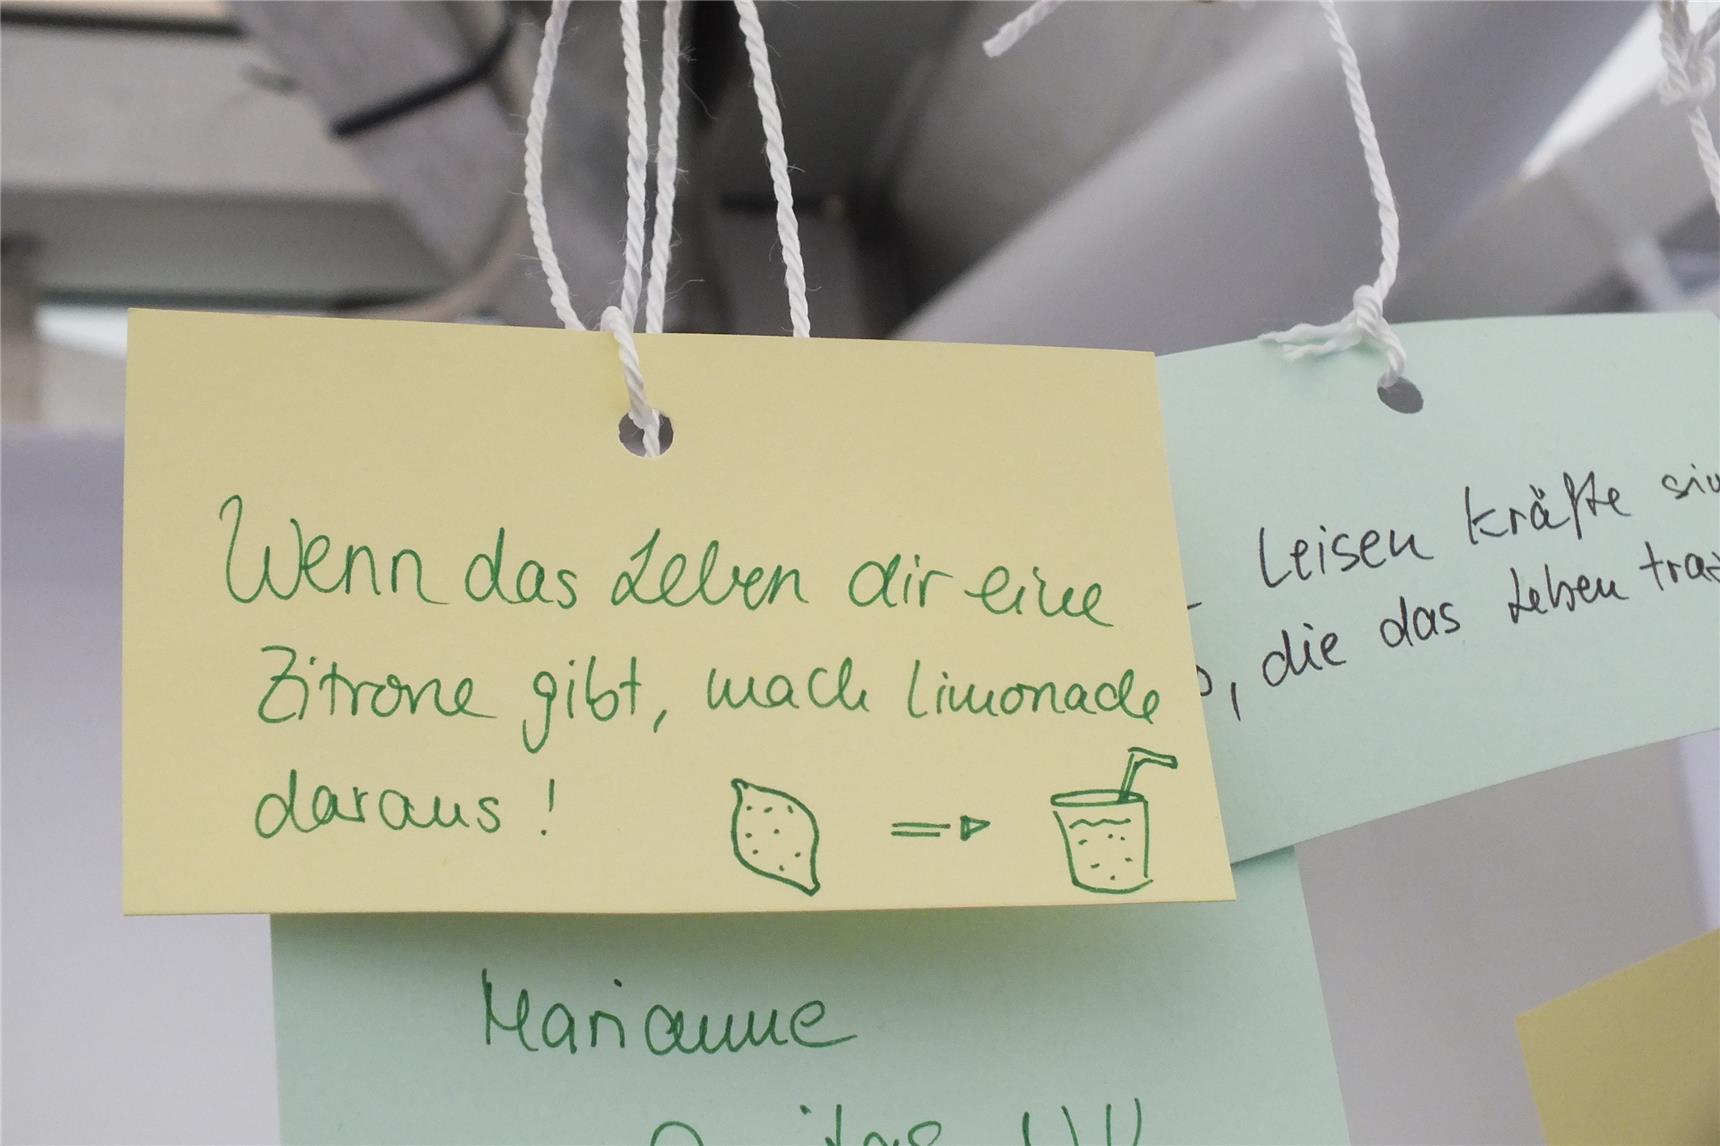 Wenn das Leben dir eine
Zitrone gibt, mach Limonade
daraus!
Leisen Kräfte
, die das Leben
Marianne